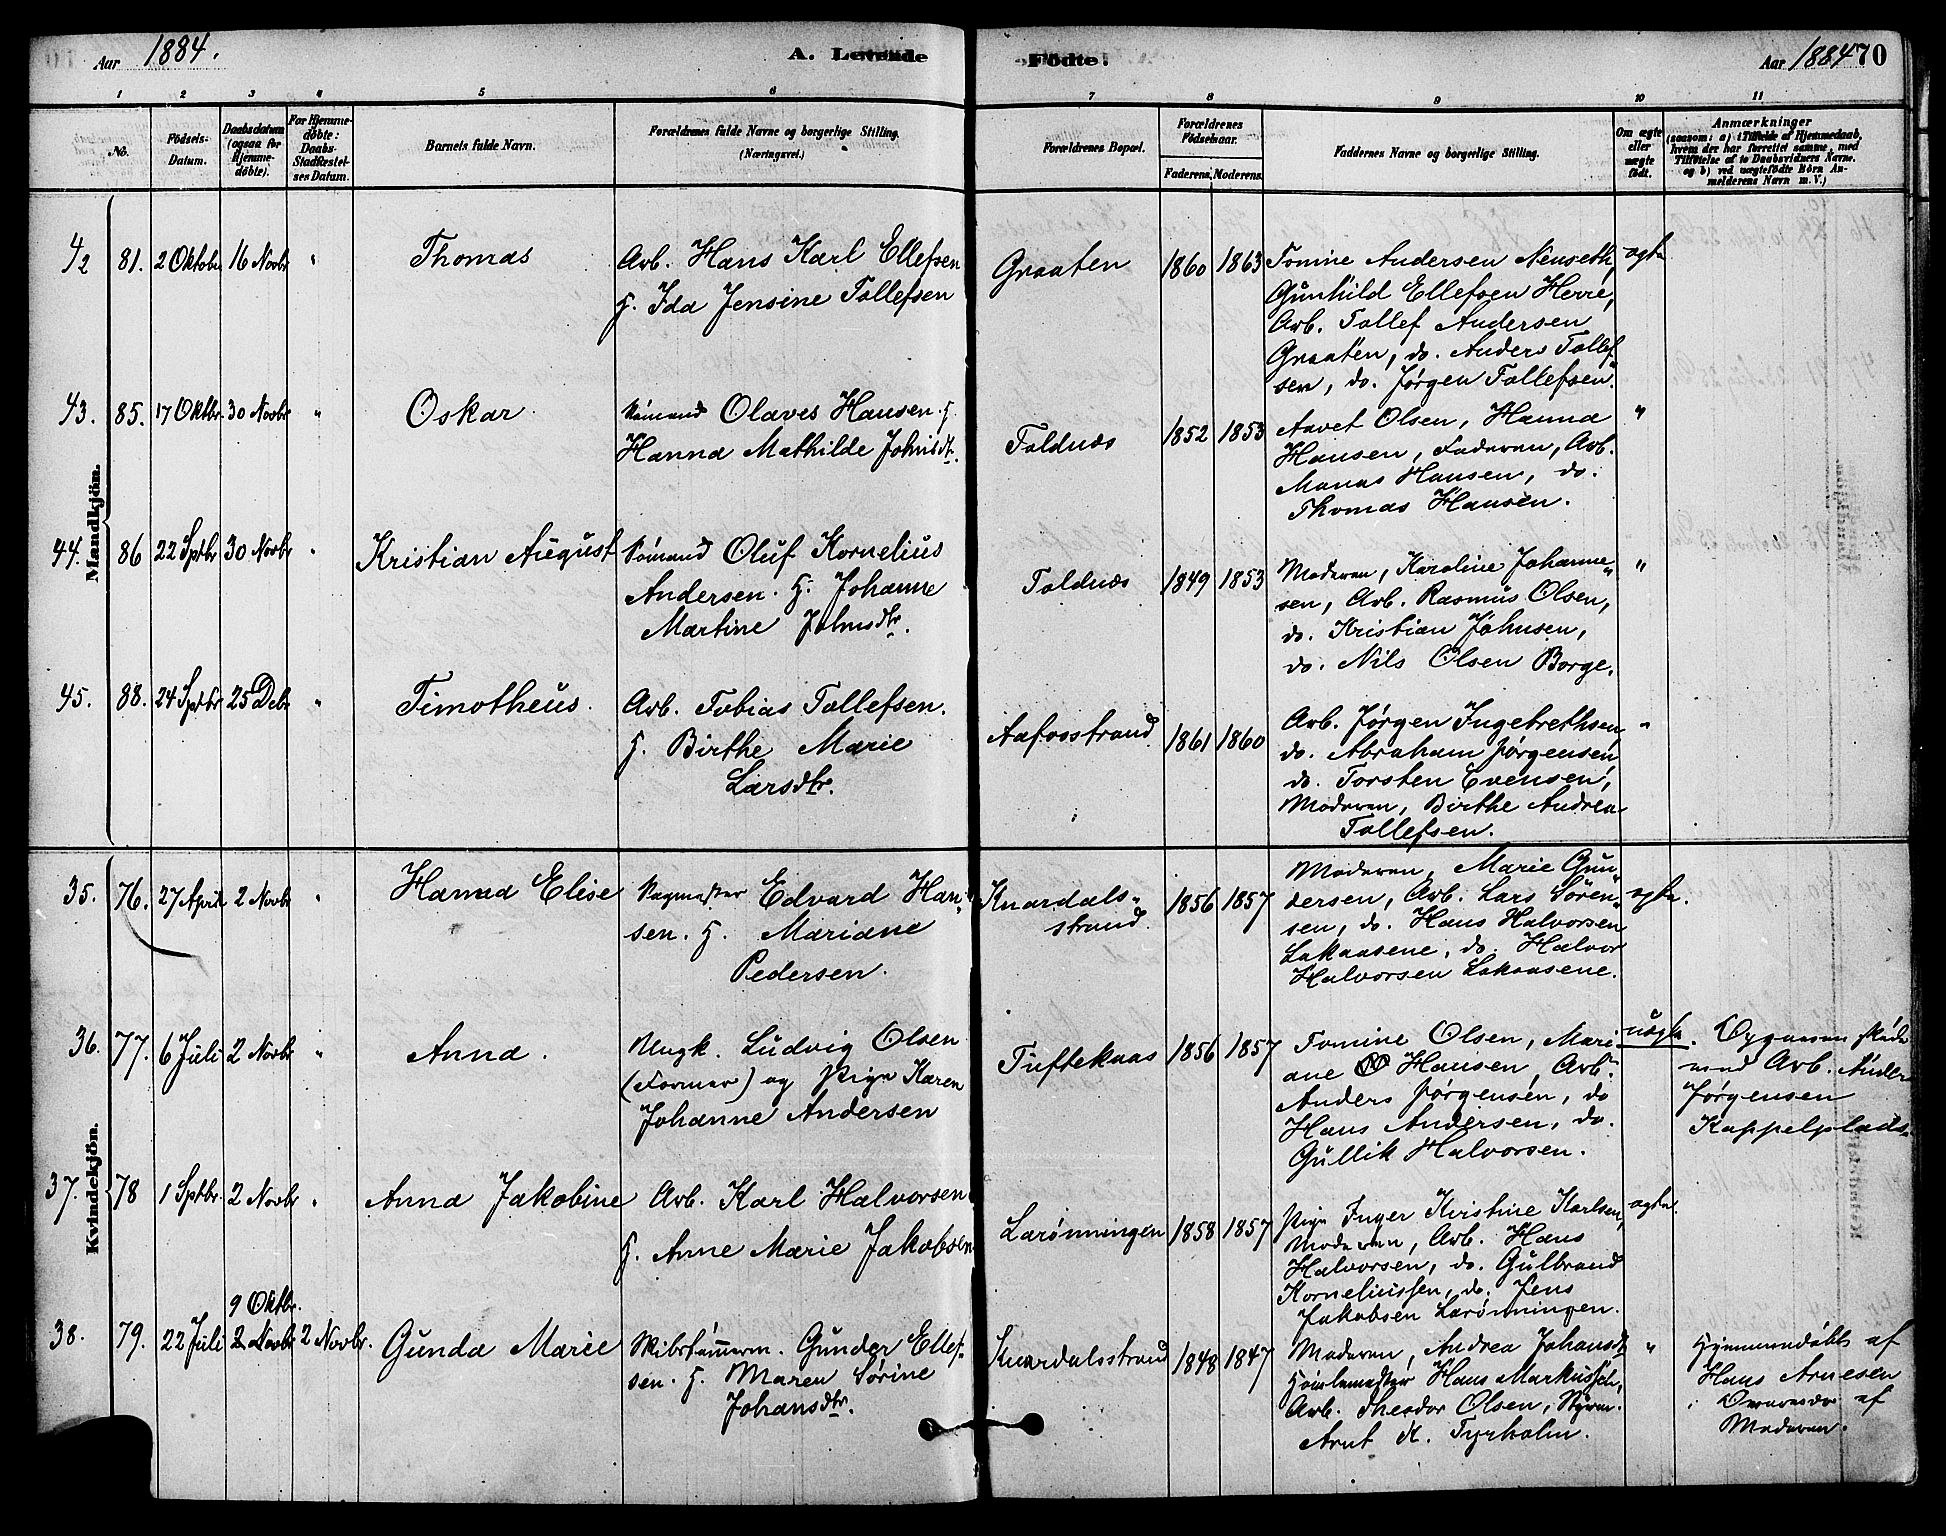 Aar 1884. A. Levende Fødte. Aar 1884 70
1 2 3 4 5 6 7 8 9 10 11
No.
Fødsels-
Datum.
Daabsdatum
(ogsaa for
Hjemme-
døbte).
For Hjemme-
døbte:
Daabs-
Stadfæstel-
ses Datum.
Barnets fulde Navn.
Forældrenes fulde Navne og borgerlige Stilling.
(Næringsvei.)
Forældrenes Bopæl.
Forældrenes
Fødselsaar.
Faderens. Moderens.
Faddernes Navne og borgerlige Stilling.
Om ægte
eller
uægte
født.
Anmærkninger
(saasom: a) i Tilfælde af Hjemmedaab,
hvem der har forrettet samme, med
Tilføielse af to Daabsvidners Navne.
og b) ved uægtefødte Børn An-
melderens Navn m. V.)
Mandkjøn.
42 81. 2 Oktober 16 Novbr " Thomas
Arb. Hans Karl Ellefsen
H. Ida Jensine Tollefsen
Graaten 1860 1863
Tomine Andersen Nenseth,
Gunhild Ellefsen Herre,
Arb. Tollef Andersen
Graaten, do. Anders Tollef-
sen, do. Jørgen Tollefsen.
ægte
43. 85. 17 Oktbr. 30 Novbr " Oskar.
Sømand Olaves Hansen. H.
Hanna Mathilde Johnsdtr.
Foldnæs 1852 1853
Aavet Olsen, Hanna
Hansen, Faderen, Arb.
Manas Hansen, do.
Thomas Hansen.
"
44. 86 22 Sptbr 30 Novbr " Kristian August
Sømand Oluf Kornelius
Andersen. H. Johanne
Martine Johnsdtr.
Foldnæs 1849 1853
Moderen, Karoline Johanne-
sen, Arb. Rasmus Olsen,
do. Kristian Johnsen,
do. Nils Olsen Borge.
"
45. 88. 24 Sptbr 25 Debr " Timotheus.
Arb. Tobias Tollefsen.
H. Birthe Marie
Larsdtr.
Aafosstrand 1861 1860
Arb. Jørgen Ingebrethsen,
do. Abraham Jørgensen,
do. Torsten Evensen,
Moderen, Birthe Andrea
Tollefsen.
"
Kvindekjøn.
35. 76. 27 April 2 Novbr " Hanna Elise
Bagmester Edvard Han-
sen. H. Mariane
Pedersen.
Knardals-
strand. 1856 1857
Moderen, Marie Gun-
dersen, Arb. Lars Søren-
sen, do. Hans Halvorsen
Lakaasene, do. Halvor
Halvorsen Lakaasene.
ægte.
36. 77. 6 Juli 2 Novbr " Anna.
Ungk. Ludvig Olsen
(Former) og Pige Karen
Johanne Andersen
Tuftekaas 1856 1857
Tomine Olsen, Mari-
ane Hansen, Arb.
Anders Jørgensen, do
Hans Andersen, do.
Gullik Halvorsen.
uægte.
Opgaven skede
med Arb. Anders
Jørgensen
Kappelplads.
37. 78 1 Sptbr. 2 Novbr " Anna Jakobine
Arb. Karl Halvorsen
H. Anne Marie Jakobsen
Larønningen 1858 1857
Pige Inger Kristine Karlsen,
Moderen, Arb. Hans
Halvorsen, do. Gulbrand
Korneliussen, do. Jens
Jakobsen Larønningen.
ægte.
38. 79. 22 Juli 9 Oktbr.
2 Novbr 2 Novbr. Gunda Marie
Skibstømmerm. Gunder Ellef-
sen. H. Maren Sørine
Johansdtr.
Knardalsstrand 1848 1847
Moderen, Andrea Johansdtr
Hans Markussen,
Arb. Theodor Olsen, Styrm.
Arnt K. Tyrholm.
"
Hjemmedøbt af
Hans Arnesen
af
Moderen.